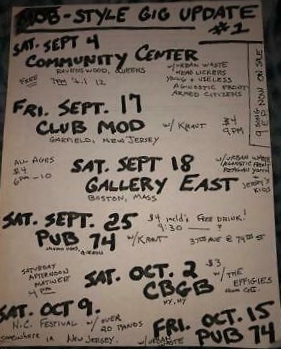 MOB-STYLE GIG UPDATE #1
SAT. SEPT 4
COMMUNITY CENTER
RAVENSWOOD, QUEENS
FREE
W/URBAN WASTE
HEADLICKERS
YOUNG & USELESS
AGNOSTIC FRONT
ARMED CITIZENS
9 SONG EP NOW ON SALE
FRI. SEPT. 17
CLUB MOD
GARFIELD, NEW JERSEY
W/ KRAUT
$4
9PM
ALL AGES
$4
6PM-10
SAT. SEPT 18
GALLERY EAST
BOSTON, MASS
W/URBAN WASTE
AGNOSTIC FRONT
REAGAN YOUTH
+
JERRY'S KIDS
SAT. SEPT. 25
PUB 74
W/KRAUT
$4 incld's FREE DRINK!
9:30 — ?
37TH AVE @ 74TH ST
SATURDAY
AFTERNOON
MATINEE
4 PM
SAT. OCT. 2
CBGB
NY, NY
$3
W/ THE
EFFIGIES
FROM CHI.
SAT. OCT 9.
N.C. FESTIVAL W/ OVER
20 BANDS
SOMEWHERE IN NEW JERSEY.
FRI. OCT. 15
PUB 74
W/URBAN WASTE